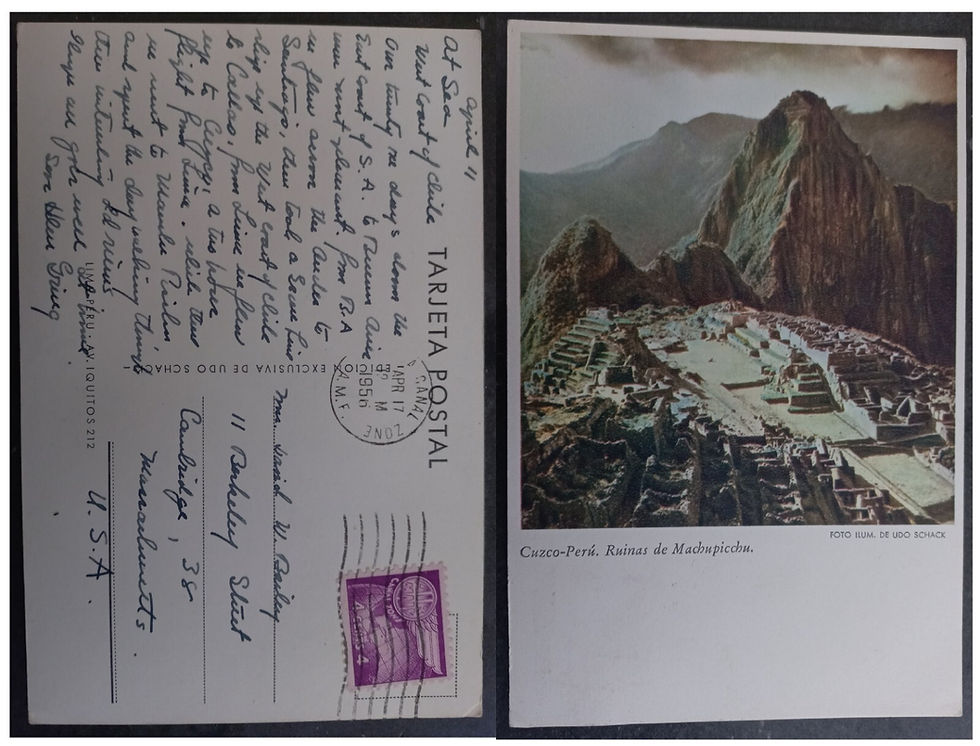 TARJETA POSTAL
April 11
At Sea
West coast of Chile
Our twenty one days down the
East coast of S.A. to Buenos Aires
were most pleasant, from B.A
we flew across the Andes to
Santiago, then took a Line
ship up the West coast of Chile
to Callao, from Lima we flew
up to a two hour
flight from Lima. while there
we went to
and spent the day walking through
the interesting old ruins
Hope all goes well at home.
Love Helen
EDICION EXCLUSIVA DE UDO SCHACK
LIMA-PERU - AV. IQUITOS 212
CANAL ZONE
APR 17
M
1956
Mrs. David W. Bailey
11 Berkeley Street
Cambridge, 38
Massachusetts.
U.S.A.
CANAL ZONE
4 CENTS 4
FOTO ILUM. DE UDO SCHACK
Cuzco-Perú. Ruinas de Machupicchu.